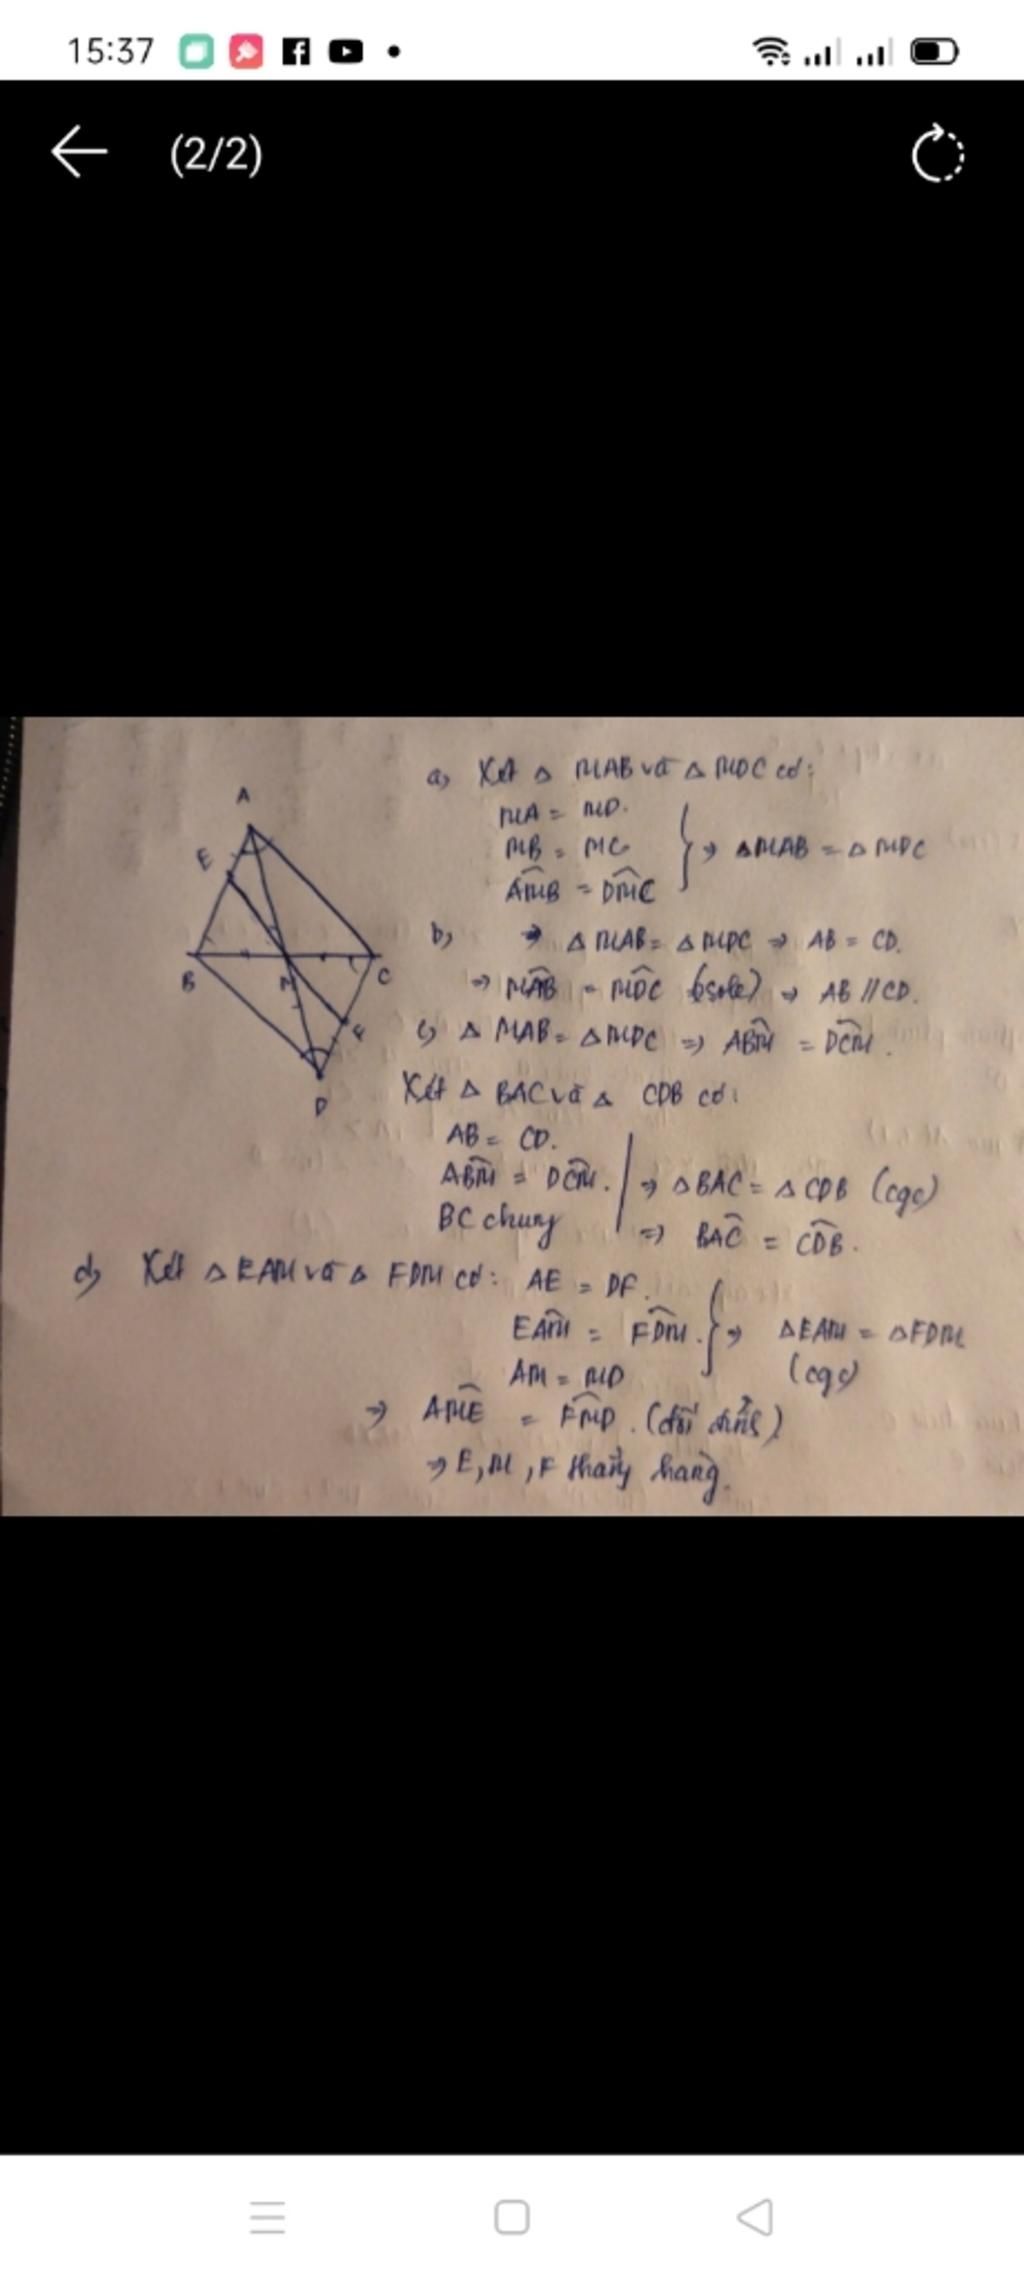 15:37
(2/2)
a, Xét Δ MAB và Δ MDC có:
MA = MD.
MB = MC
AMB = DMC
} => ΔMAB = ΔMDC
b, => ΔMAB = ΔMDC => AB = CD.
=> MAB = MDC (sole) => AB // CD.
c, Δ MAB = ΔMDC => ABM = DCM.
Xét Δ BAC và Δ CDB có:
AB = CD.
ABM = DCM.
BC chung
=> ΔBAC = ΔCDB (cgc)
=> BAC = CDB.
d, Xét ΔEAM và Δ FDM có: AE = DF.
EAM = FDM.
AM = MD
} => ΔEAM = ΔFDM
(cgc)
=> AME = FMD. (đối đỉnh)
=> E, M, F thẳng hàng.
A
E
B
M
C
F
D